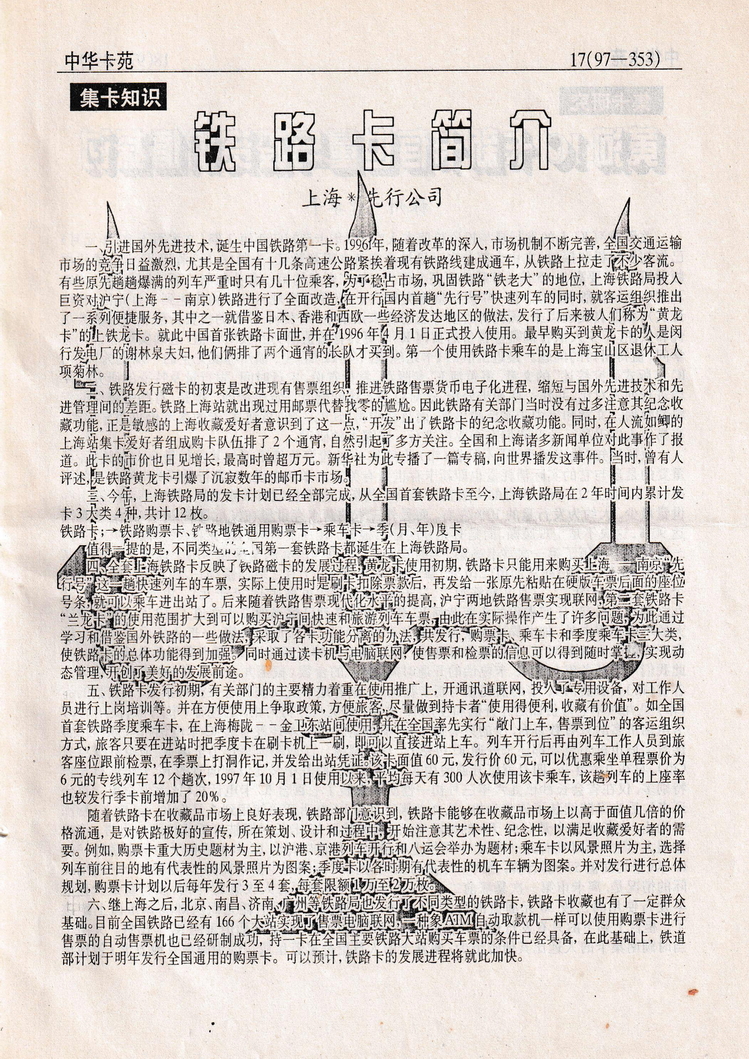 中华卡苑
17(97—353)
集卡知识
铁路卡简介
上海*先行公司
一、引进国外先进技术，诞生中国铁路第一卡。1996年，随着改革的深人，市场机制不断完善，全国交通运输
市场的竞争日益激烈，尤其是全国有十几条高速公路紧挨着现有铁路线建成通车，从铁路上拉走了不少客流。
有些原先趟趟爆满的列车严重时只有几十位乘客，为了稳占市场，巩固铁路“铁老大”的地位，上海铁路局投人
巨资对沪宁(上海－－南京)铁路进行了全面改造，在开行国内首趟“先行号”快速列车的同时，就客运组织推出
了一系列便捷服务，其中之一就借鉴日本、香港和西欧一些经济发达地区的做法，发行了后来被人们称为“黄龙
卡”的上铁龙卡。就此中国首张铁路卡面世，并在1996年4月1日正式投入使用。最早购买到黄龙卡的人是闵
行发电厂的谢林泉夫妇，他们俩排了两个通宵的长队才买到。第一个使用铁路卡乘车的是上海宝山区退休工人
项菊林。
二、铁路发行磁卡的初衷是改进现有售票组织，推进铁路售票货币电子化进程，缩短与国外先进技术和先
进管理间的差距。铁路上海站就出现过用邮票代替找零的尴尬。因此铁路有关部门当时没有过多注意其纪念收
藏功能，正是敏感的上海收藏爱好者意识到了这一点，“开发”出了铁路卡的纪念收藏功能。同时，在人流如鲫的
上海站集卡爱好者组成购卡队伍排了2个通宵，自然引起了多方关注。全国和上海诸多新闻单位对此事作了报
道。此卡的市价也日见增长，最高时曾超万元。新华社为此专播了一篇专稿，向世界播发这事件。当时，曾有人
评述，是铁路黄龙卡引爆了沉寂数年的邮币卡市场。
三、今年，上海铁路局的发卡计划已经全部完成，从全国首套铁路卡至今，上海铁路局在2年时间内累计发
卡3大类4种，共计12枚。
铁路卡：→铁路购票卡、铁路地铁通用购票卡→乘车卡→季(月、年)度卡
值得一提的是，不同类型的全国第一套铁路卡都诞生在上海铁路局。
四、全套上海铁路卡反映了铁路磁卡的发展过程，黄龙卡使用初期，铁路卡只能用来购买上海——南京“先
行号”这一趟快速列车的车票，实际上使用时是刷卡扣除票款后，再发给一张原先粘贴在硬版车票后面的座位
号条，就可以乘车进出站了。后来随着铁路售票现代化水平的提高，沪宁两地铁路售票实现联网，第二套铁路卡
“兰龙卡”的使用范围扩大到可以购买沪宁间快速和旅游列车车票，由此在实际操作产生了许多问题，为此通过
学习和借鉴国外铁路的一些做法，采取了各卡功能分离的办法，共发行，购票卡、乘车卡和季度乘车卡三大类，
使铁路卡的总体功能得到加强，同时通过读卡机与电脑联网，使售票和检票的信息可以得到随时掌握，实现动
态管理，开创了美好的发展前途。
五、铁路卡发行初期，有关部门的主要精力着重在使用推广上，开通讯道联网，投入了专用设备，对工作人
员进行上岗培训等。并在方便使用上争取政策，方便旅客，尽量做到持卡者“使用得便利，收藏有价值”。如全国
首套铁路季度乘车卡，在上海梅陇－－金卫东站间使用，并在全国率先实行“敞门上车，售票到位”的客运组织
方式，旅客只要在进站时把季度卡在刷卡机上一刷，即可以直接进站上车。列车开行后再由列车工作人员到旅
客座位跟前检票，在季票上打洞作记，并发给出站凭证。该卡面值60元，发行价60元，可以优惠乘坐单程票价为
6元的专线列车12个趟次，1997年10月1日使用以来，平均每天有300人次使用该卡乘车，该趟列车的上座率
也较发行季卡前增加了20%。
随着铁路卡在收藏品市场上良好表现，铁路部门意识到，铁路卡能够在收藏品市场上以高于面值几倍的价
格流通，是对铁路极好的宣传，所在策划、设计和过程中，开始注意其艺术性、纪念性，以满足收藏爱好者的需
要。例如，购票卡重大历史题材为主，以沪港、京港列车开行和八运会举办为题材；乘车卡以风景照片为主，选择
列车前往目的地有代表性的风景照片为图案；季度卡以各时期有代表性的机车车辆为图案。并对发行进行总体
规划，购票卡计划以后每年发行3至4套，每套限额1万至2万枚。
六、继上海之后，北京、南昌、济南、广州等铁路局也发行了不同类型的铁路卡，铁路卡收藏也有了一定群众
基础。目前全国铁路已经有166个大站实现了售票电脑联网，一种象ATM自动取款机一样可以使用购票卡进行
售票的自动售票机也已经研制成功，持一卡在全国主要铁路大站购买车票的条件已经具备，在此基础上，铁道
部计划于明年发行全国通用的购票卡。可以预计，铁路卡的发展进程将就此加快。